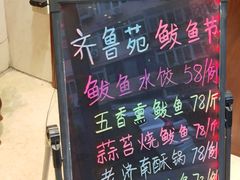 齐鲁苑 鲅鱼节
鲅鱼水饺 58/例
五香熏鲅鱼 78/斤
蒜苔烧鲅鱼 78/
老济南酥锅 78/